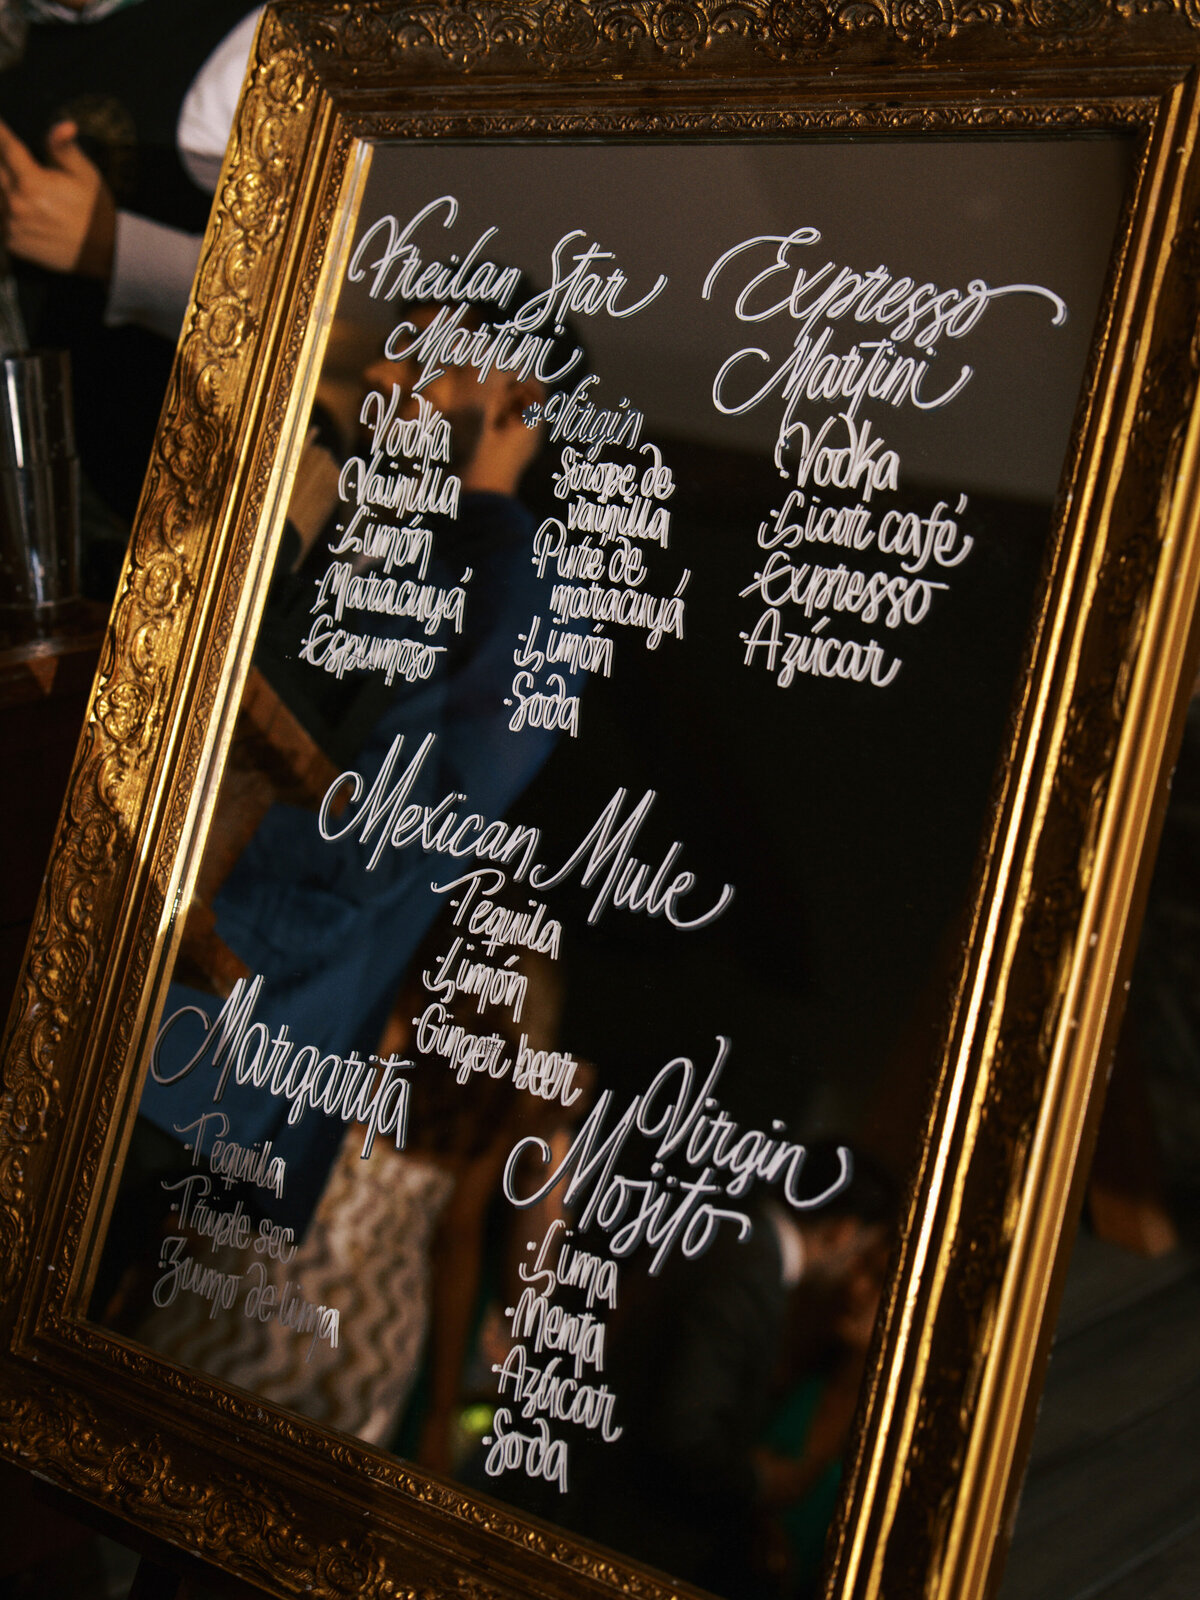 Freilan Star
Martini
·Vodka
·Vainilla
·Limón
·Maracuyá
·Espumoso
*Virgin
·Sirope de
vainilla
·Pure de
maracuyá
·Limón
·Soda
Expresso
Martini
·Vodka
·Licor café
·Expresso
·Azúcar
Mexican Mule
·Tequila
·Limón
·Ginger beer
Margarita
·Tequila
·Triple sec
·Zumo de lima
Virgin
Mojito
·Lima
·Menta
·Azúcar
·Soda